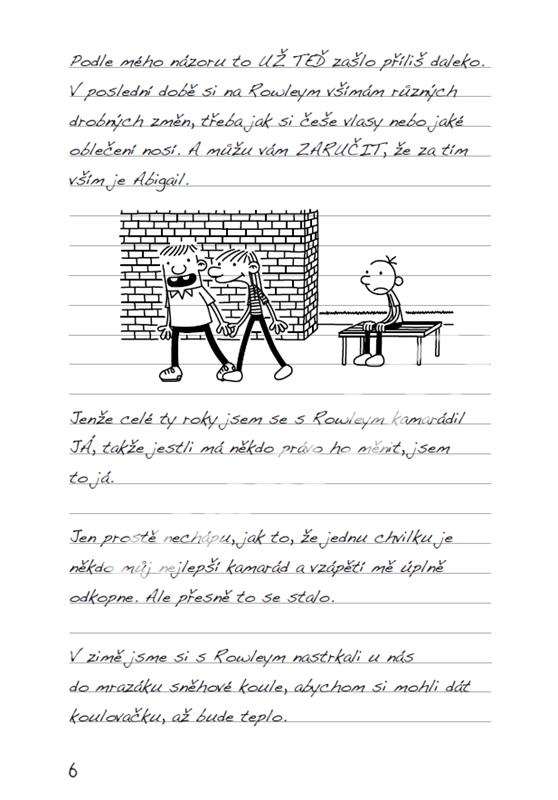 Podle mého názoru to UŽ TEĎ zašlo příliš daleko.
V poslední době si na Rowleym všímám různých
drobných změn, třeba jak si češe vlasy nebo jaké
oblečení nosí. A můžu vám ZARUČIT, že za tím
vším je Abigail.
Jenže celé ty roky jsem se s Rowleym kamarádil
JÁ, takže jestli má někdo právo ho měnit, jsem
to já.
Jen prostě nechápu, jak to, že jednu chvilku je
někdo můj nejlepší kamarád a vzápětí mě úplně
odkopne. Ale přesně to se stalo.
V zimě jsme si s Rowleym nastrkali u nás
do mrazáku sněhové koule, abychom si mohli dát
koulovačku, až bude teplo.
6